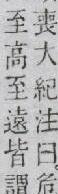 喪大紀注曰危
至高至遠皆謂